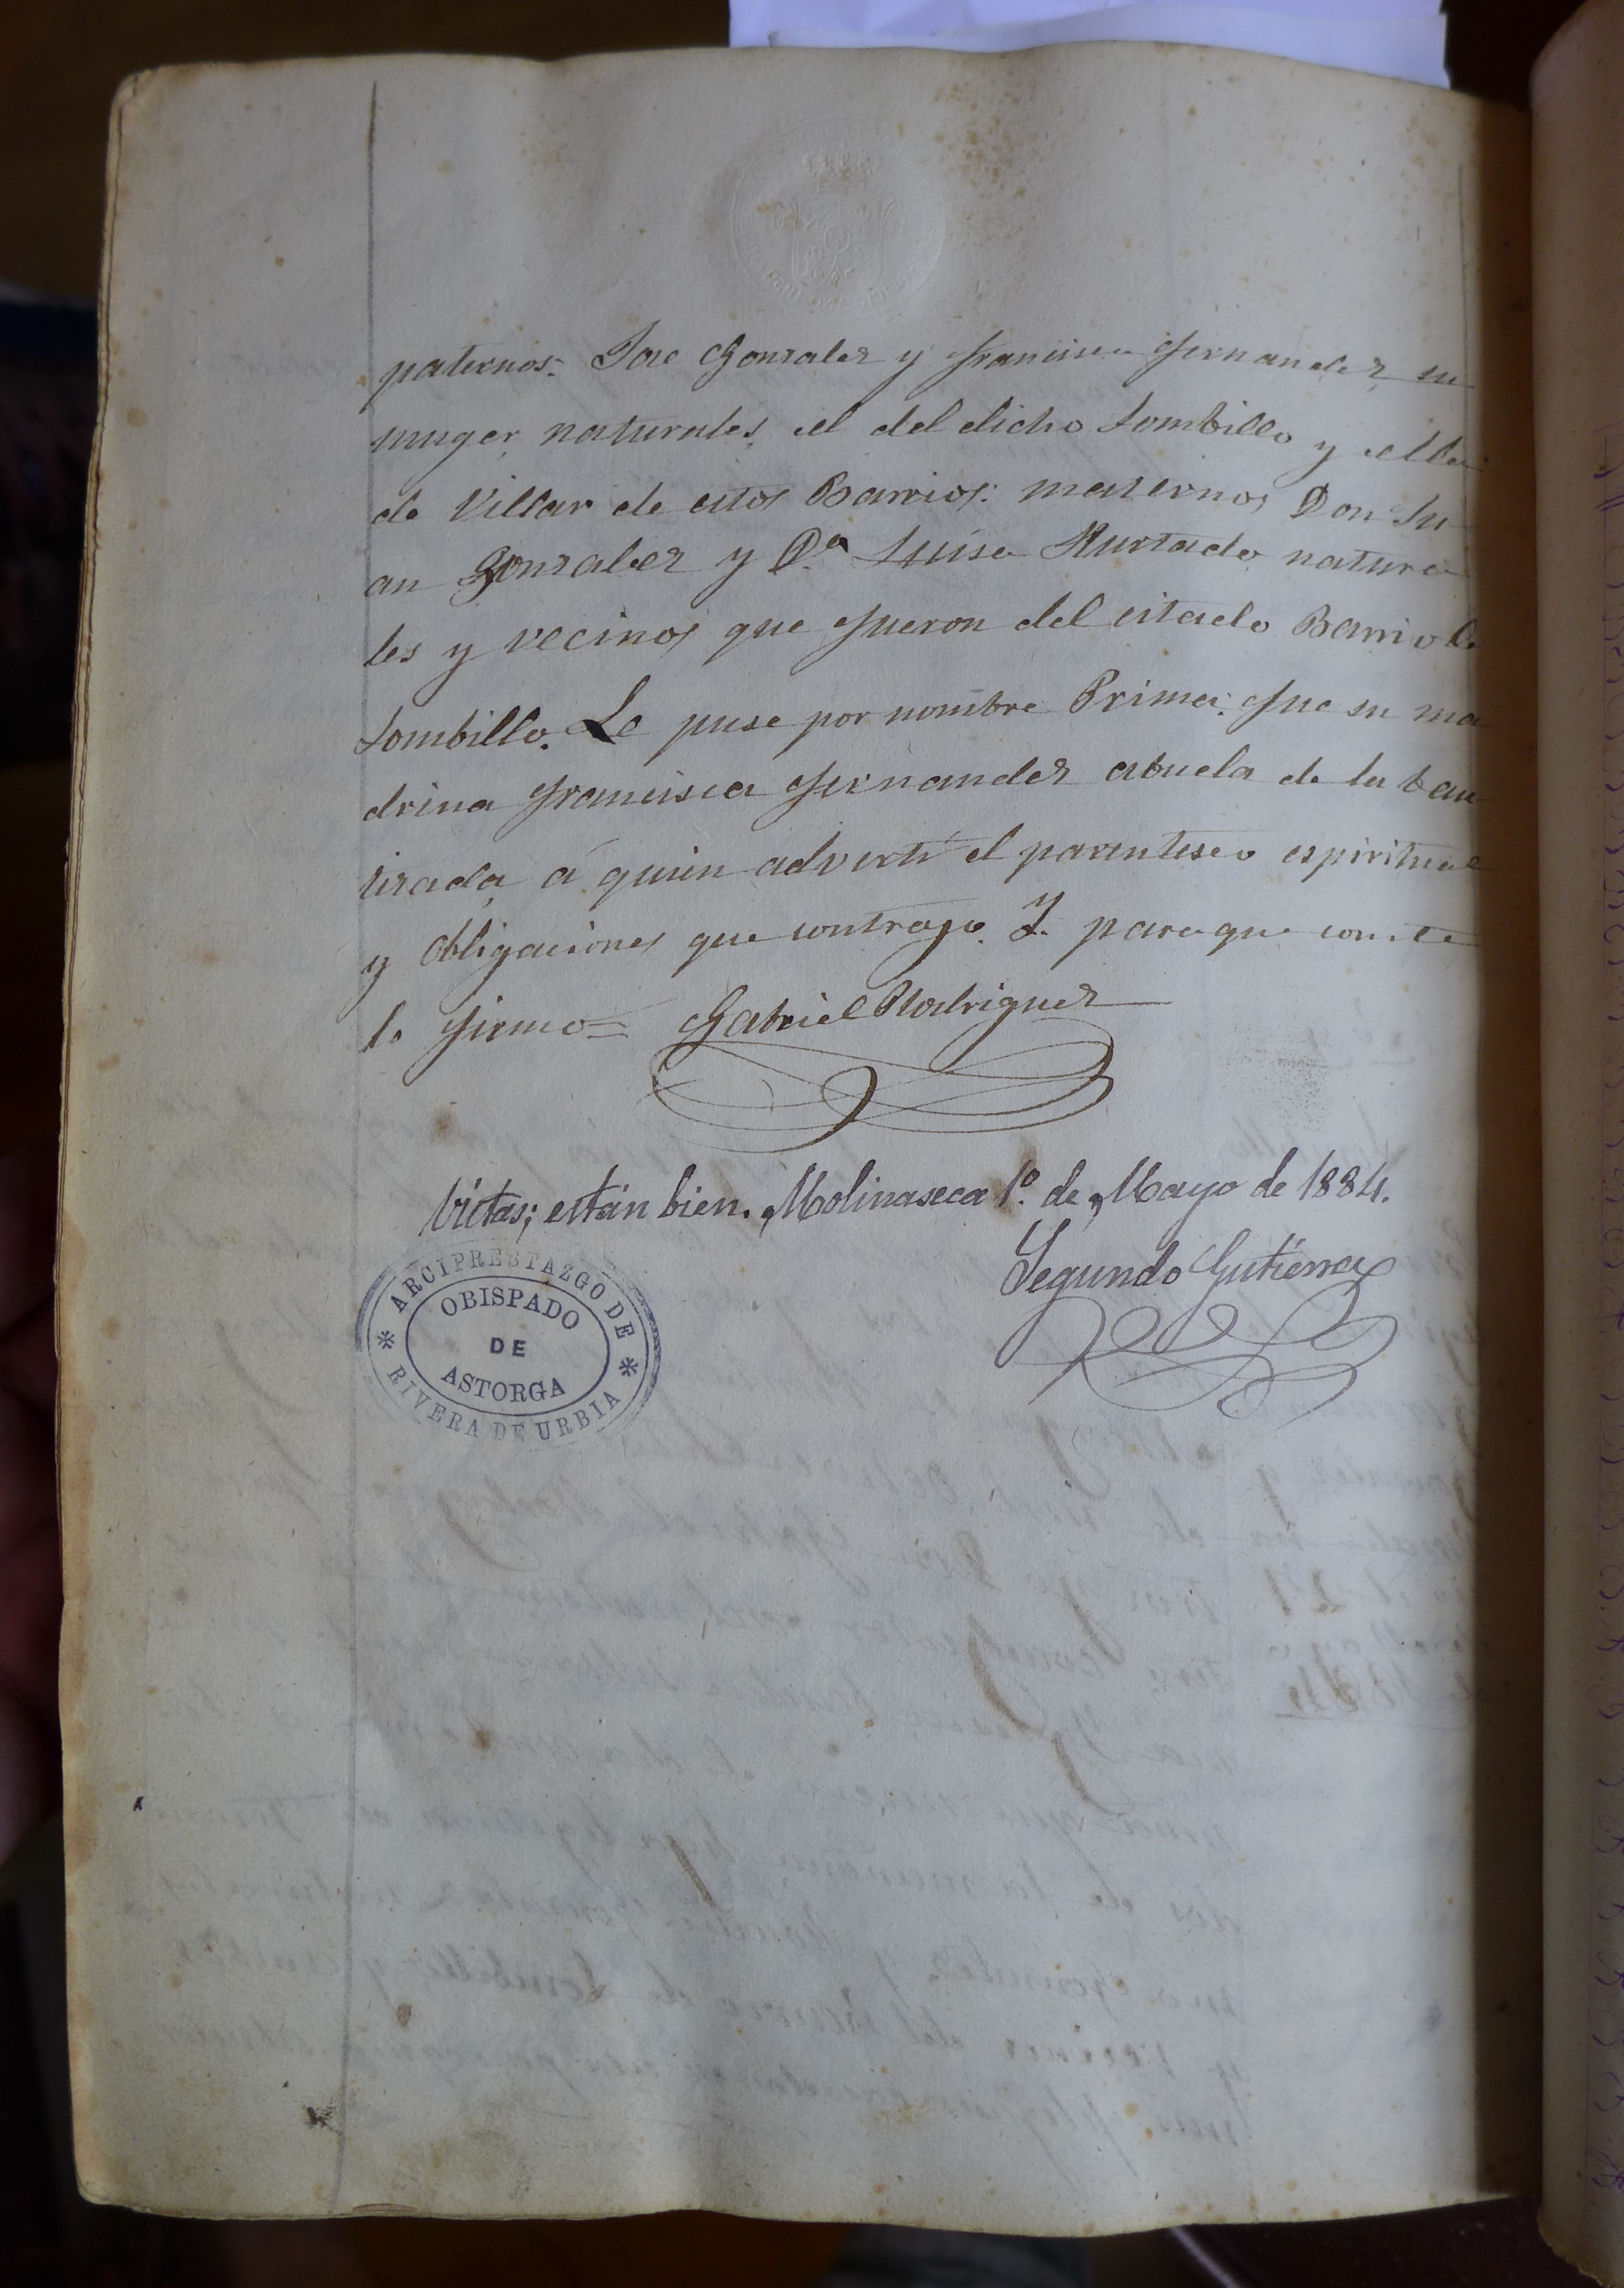 paternos: Jose Gonzalez y Francisca Fernandez su
muger, naturales, el del dicho Lombillo y ella
de Villar de estos Barrios: maternos Don Ju
an Gonzalez y D.ª Luisa Hurtado natura
les y vecinos que fueron del citado Barrio de
Lombillo. Le puse por nombre Prima: fue su ma
drina Francisca Fernandez abuela de la bau
tizada, á quien adverti el parentesco espiritual
y obligaciones que contrajo. Y para que conste
lo firmo= Gabriel Rodriguez
Vistas; están bien. Molinaseca 1º. de Mayo de 1884.
Segundo Gutiérrez
ARCIPRESTAZGO DE
OBISPADO
DE
ASTORGA
RIVERA DE URBIA